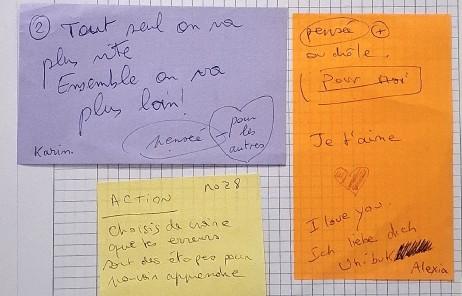 ② Tout seul on va
plus vite
Ensemble on va
plus loin!
pensée
pour
les
autres
Karin.
pensée +
ou drôle.
Pour
Je t'aime
I love you.
Ich liebe dich
Uhibuk
Alexia
ACTION n°28
Choisis de croire
que tes erreurs
sont des étapes pour
pouvoir apprendre